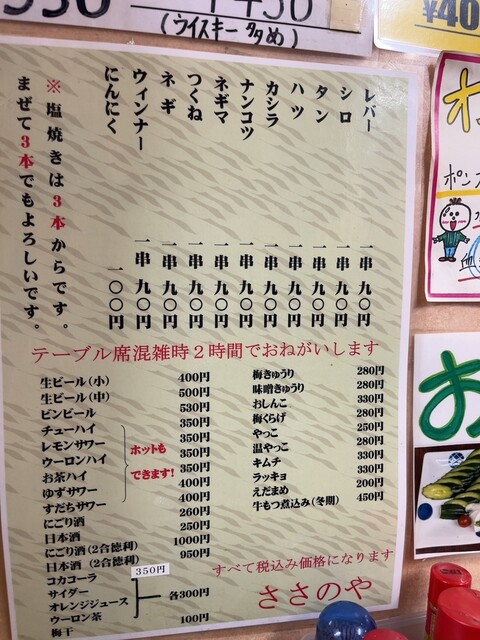 (ウイスキー多め)
¥40
レバー 一串九〇円
シロ 一串九〇円
タン 一串九〇円
ハツ 一串九〇円
カシラ 一串九〇円
ナンコツ 一串九〇円
ネギマ 一串九〇円
つくね 一串九〇円
ネギ 一串九〇円
ウィンナー 一串九〇円
にんにく 一〇〇円
※塩焼きは3本からです。
まぜて3本でもよろしいです。
テーブル席混雑時2時間でおねがいします
生ビール(小) 400円
生ビール(中) 500円
ビンビール 530円
チューハイ 350円
レモンサワー 350円
ウーロンハイ 350円
お茶ハイ 350円
ゆずサワー 400円
すだちサワー 400円
ホットも
できます!
にごり酒 260円
日本酒 250円
にごり酒(2合徳利) 1000円
日本酒(2合徳利) 950円
コカコーラ 350円
サイダー
オレンジジュース 各300円
ウーロン茶
梅干 100円
梅きゅうり 280円
味噌きゅうり 280円
おしんこ 330円
梅くらげ 280円
やっこ 250円
温やっこ 280円
キムチ 330円
ラッキョ 330円
えだまめ 200円
牛もつ煮込み(冬期) 450円
すべて税込み価格になります
ささのや
ポン
お